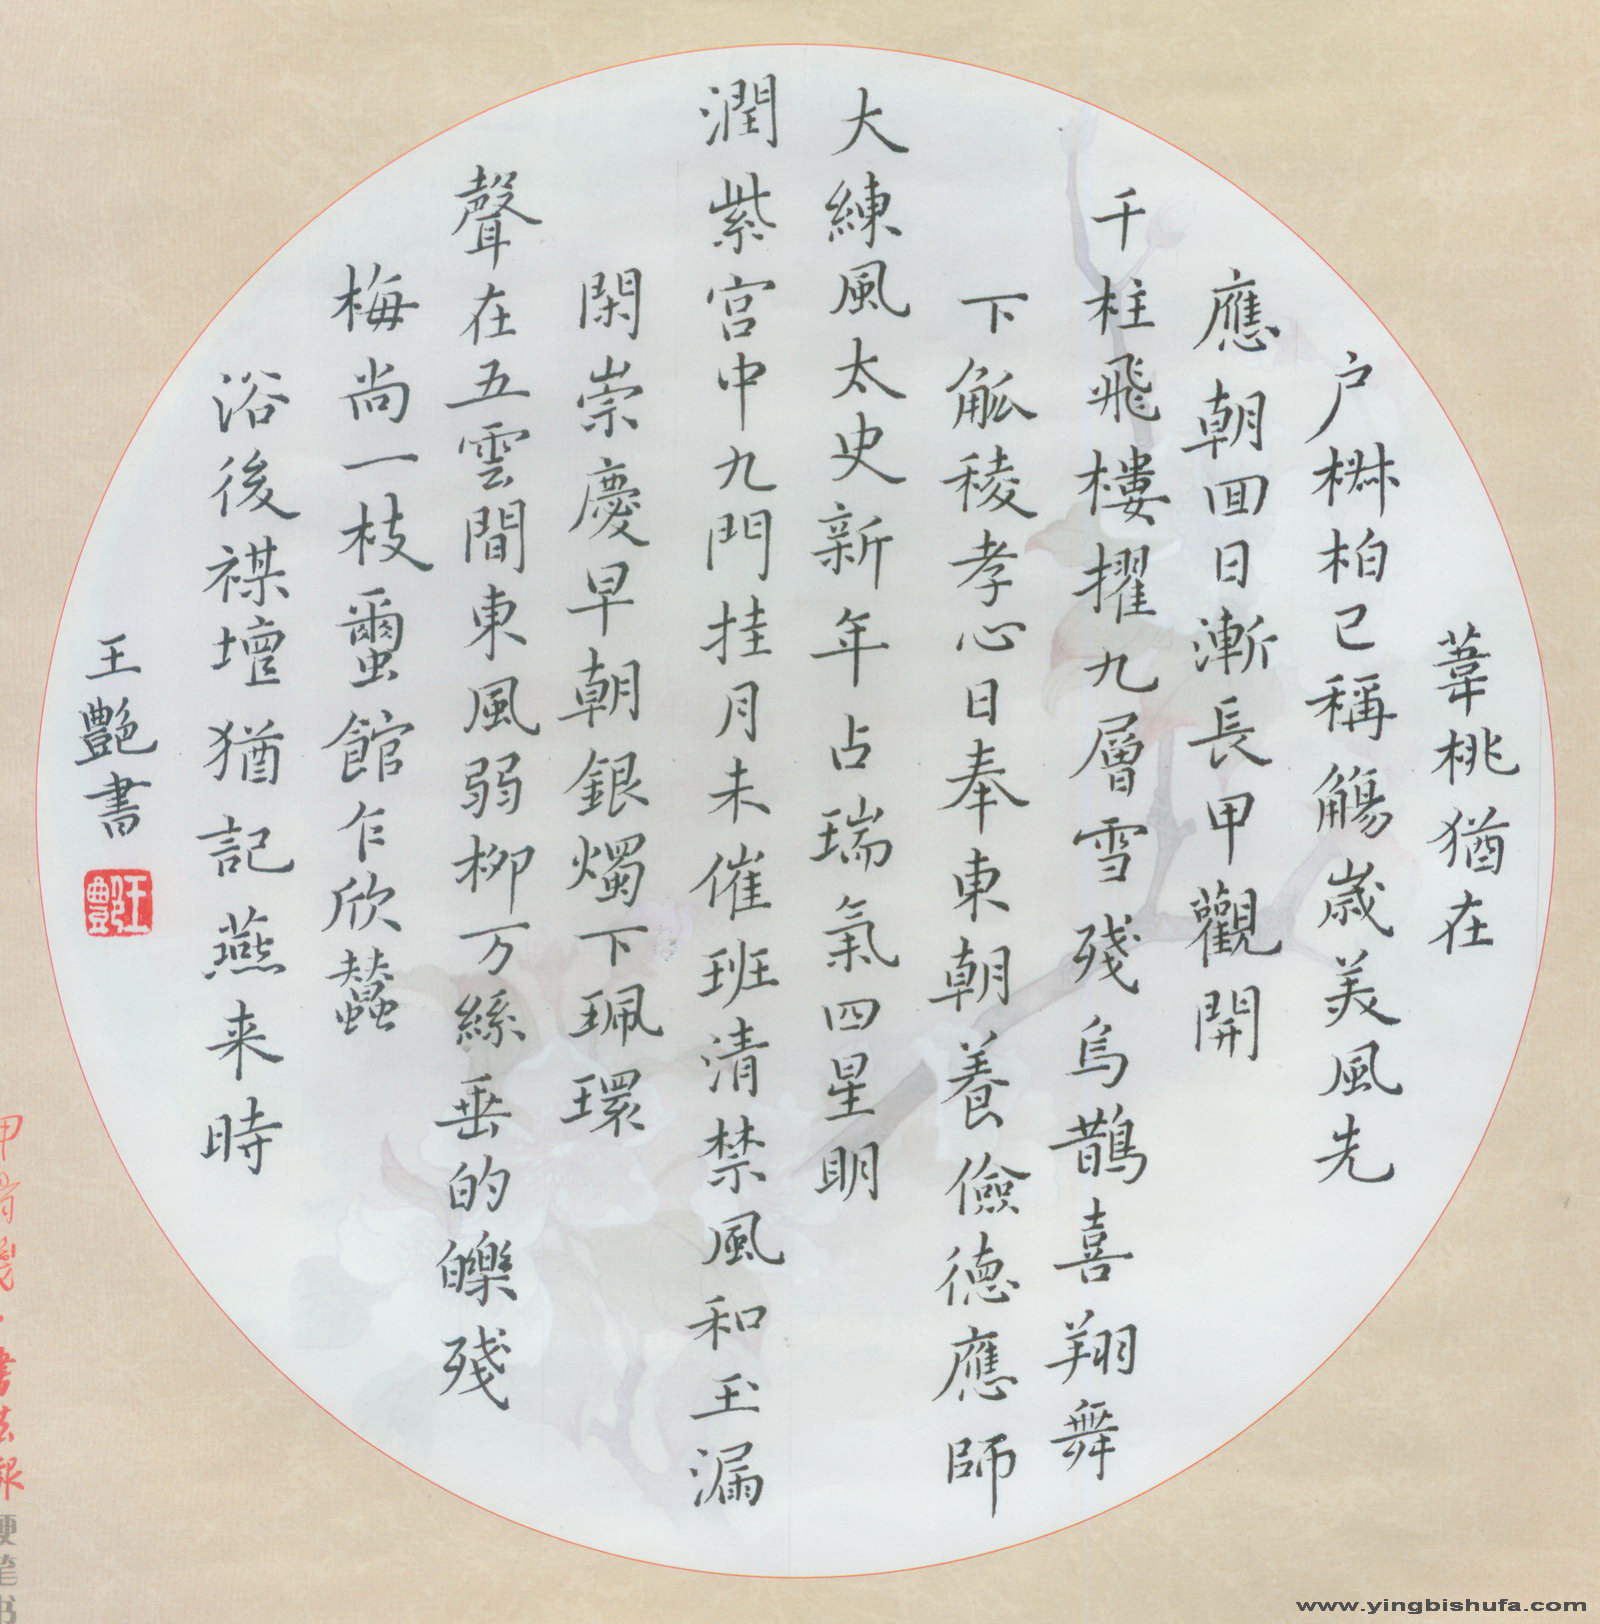 葦桃猶在
户椒柏已稱觴歲美風先
應朝回日漸長甲觀開
千柱飛樓擢九層雪殘烏鵲喜翔舞
下觚稜孝心日奉東朝養儉德應師
大練風太史新年占瑞氣四星明
潤紫宫中九門挂月未催班清禁風和玉漏
閑崇慶早朝銀燭下珮環
聲在五雲間東風弱柳万絲垂的皪殘
梅尚一枝蠒館乍欣蠶
浴後禖壇猶記燕来時
王艷書
王艷
甲骨箋·書法報
硬笔书
www.yingbishufa.com